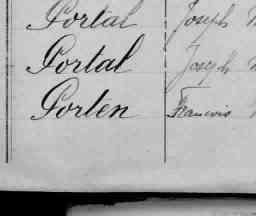 Portal Joseph
Portal Joseph
Porten Francois